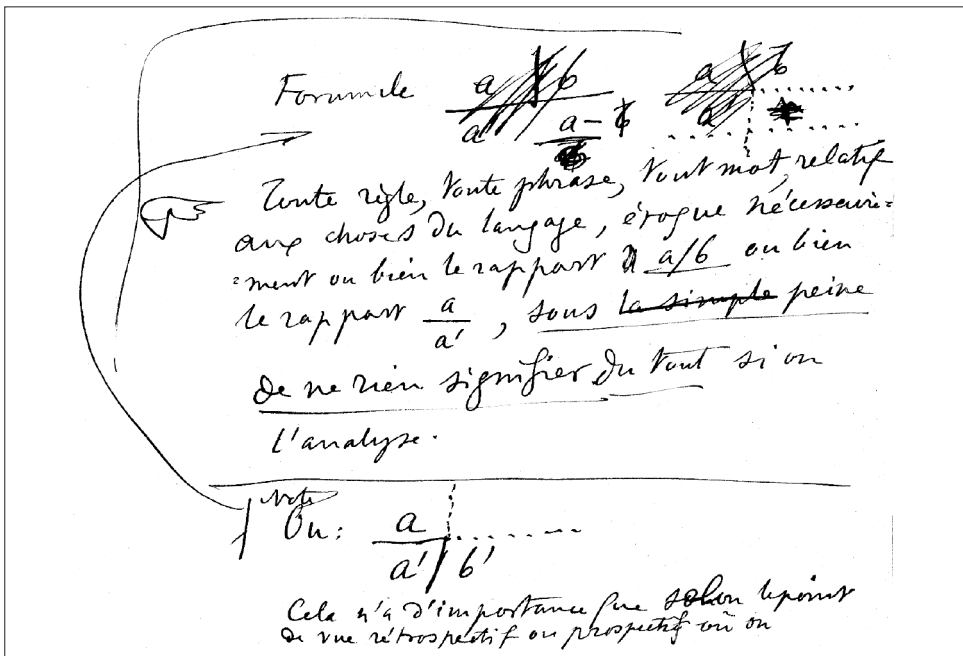 Formule a b a b
a' a – b a'
Toute règle, toute phrase, tout mot, relatif
aux choses du langage, évoque nécessairi=
=ment ou bien le rapport a/b ou bien
le rapport a/a', sous la simple peine
de ne rien signifier du tout si on
l'analyse.
Note
Ou: a
a'/b'
Cela n'a d'importance que selon le point
de vue rétrospectif ou prospectif où on